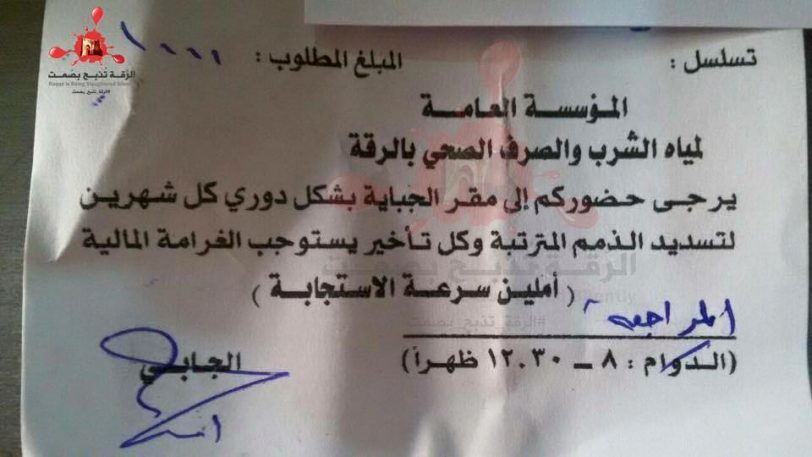 الرقة تذبح بصمت
Raqqa is Being Slaughtered Silently
#الرقة_تذبح_بصمت
تسلسل : المبلغ المطلوب :
المؤسسة العامة
لمياه الشرب والصرف الصحي بالرقة
يرجى حضوركم إلى مقر الجباية بشكل دوري كل شهرين
لتسديد الذمم المترتبة وكل تأخير يستوجب الغرامة المالية
الرقة تذبح بصمت
( أملين سرعة الاستجابة )
#الرقة_تذبح_بصمت
المراجعة
(الدوام : ٨ ــ ١٢.٣٠ ظهراً)
الجابي